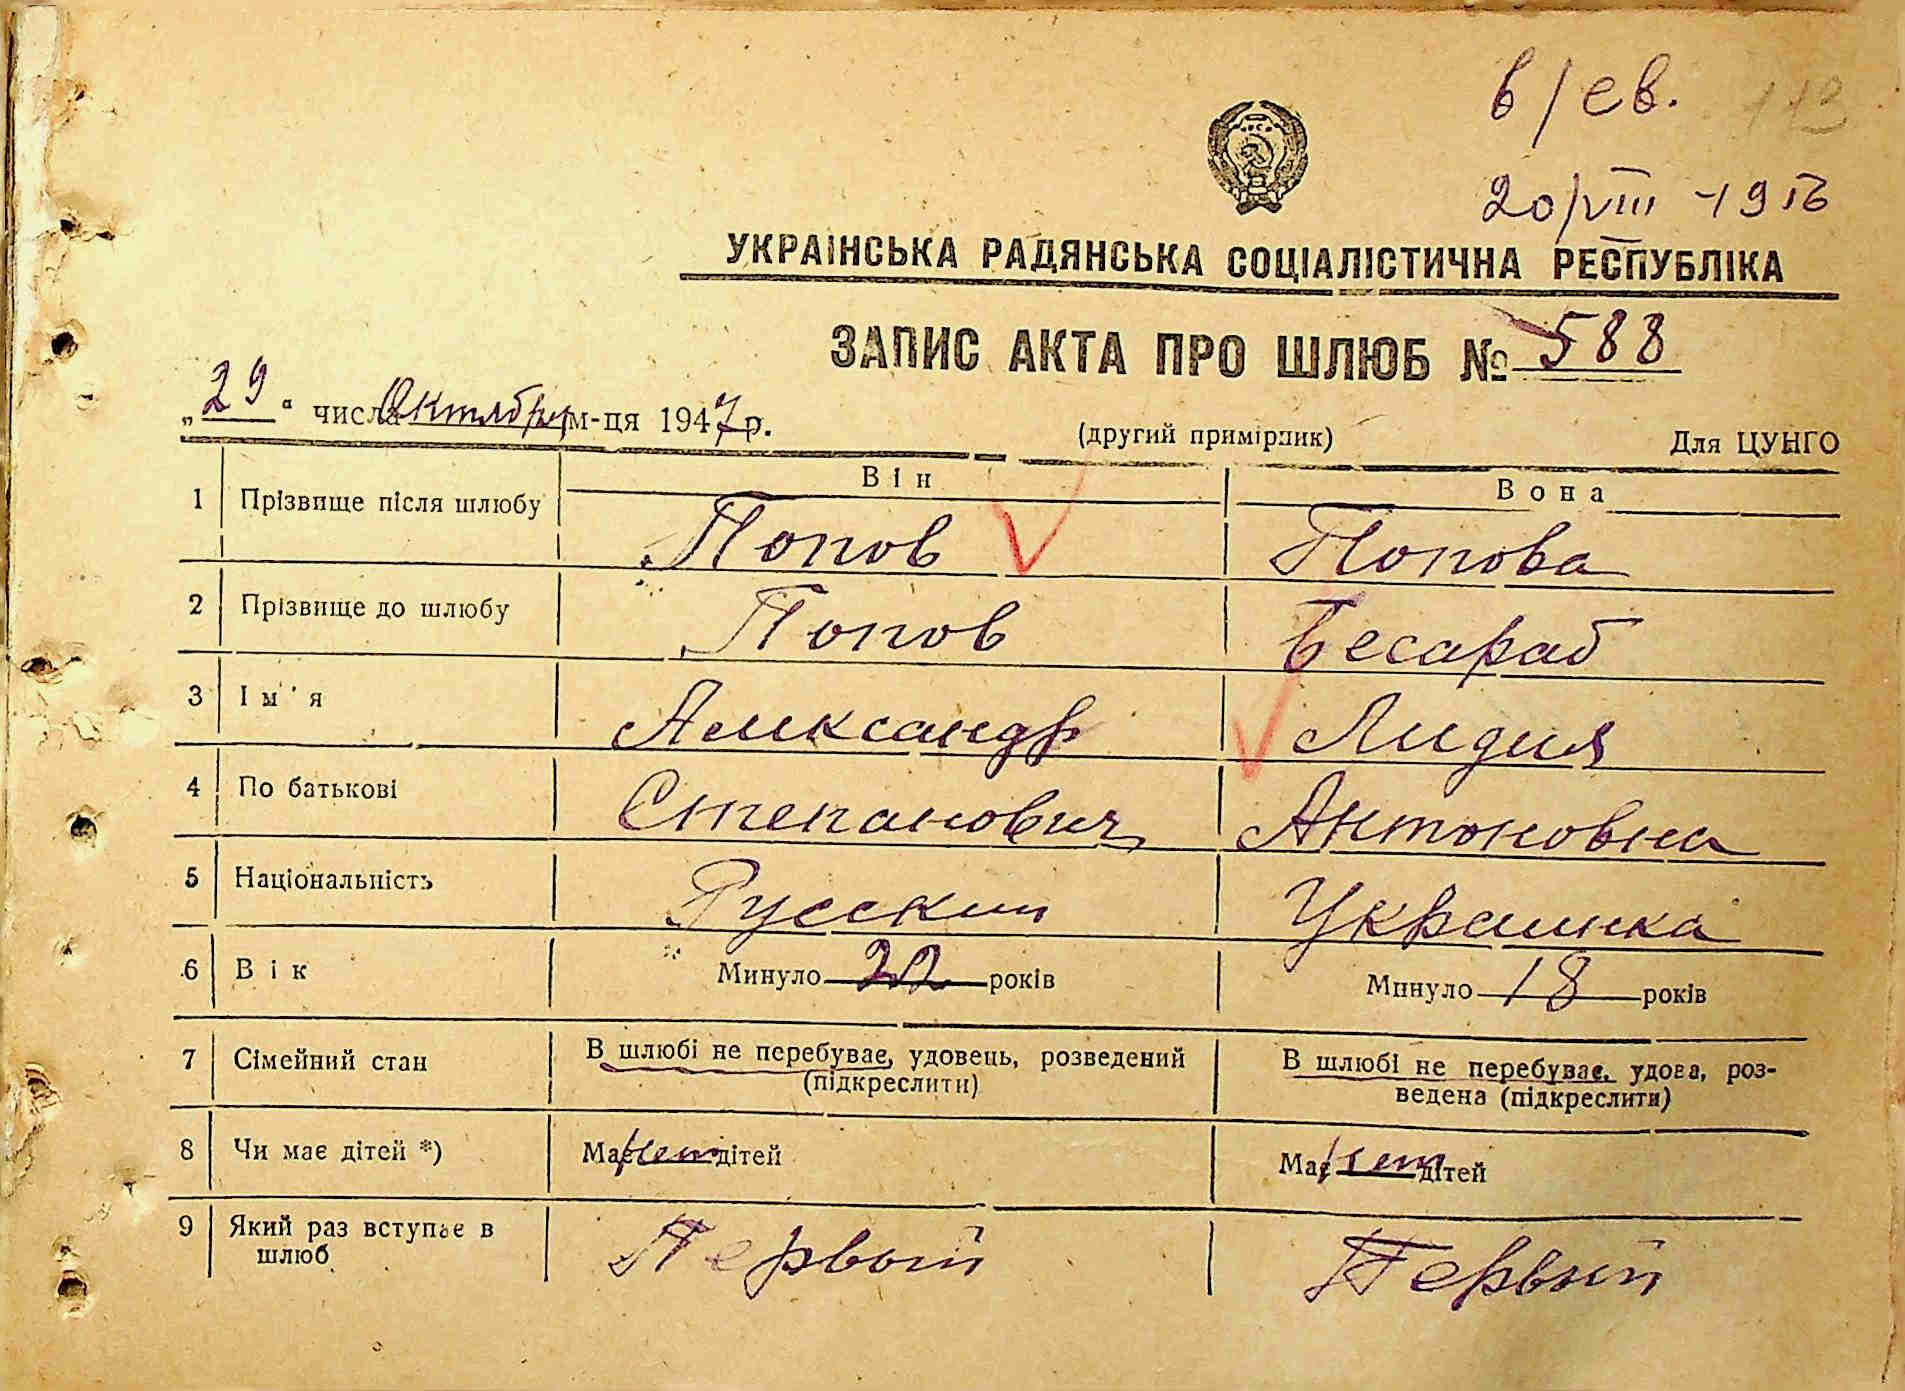 в/ев. 113
20/VIII - 1916
УКРАЇНСЬКА РАДЯНСЬКА СОЦІАЛІСТИЧНА РЕСПУБЛІКА
ЗАПИС АКТА ПРО ШЛЮБ № 588
„29“ числа Октября м-ця 1947 р.
(другий примірник) Для ЦУНГО
Він Вона
1 Прізвище після шлюбу Попов Попова
2 Прізвище до шлюбу Попов Бесараб
3 Ім'я Александр Лидия
4 По батькові Степанович Антоновна
5 Національність Русский Украинка
6 Вік Минуло 22 років Минуло 18 років
7 Сімейний стан В шлюбі не перебуває, удовець, розведений В шлюбі не перебуває, удова, роз-
(підкреслити) ведена (підкреслити)
8 Чи має дітей *) Має нет дітей Має нет дітей
9 Який раз вступає в Первый Первый
шлюб